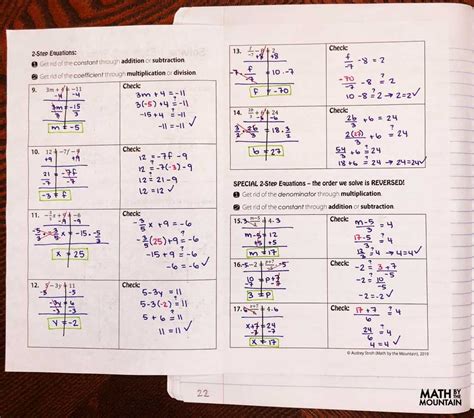 2-Step Equations:
1 Get rid of the constant through addition or subtraction.
2 Get rid of the coefficient through multiplication or division.
9. 3m + 4 = -11
-4 -4
3m = -15
3 3
m = -5
Check:
3m + 4 = -11
3(-5) + 4 = -11
-15 + 4 = -11
-11 = -11 ✓
10. 12 = -7f - 9
+9 +9
21 = -7f
-7 -7
-3 = f
Check:
12 = -7f - 9
12 = -7(-3) - 9
12 = 21 - 9
12 = 12 ✓
11. -3/5 x + 9 = -6
-9 -9
x = 25
Check:
-3/5 x + 9 = -6
-3/5 (25) + 9 = -6
-15 + 9 = -6
-6 = -6 ✓
12. 5 - 3y = 11
-3y = 6
-3 -3
y = -2
Check:
5 - 3y = 11
5 - 3(-2) = 11
5 + 6 = 11
11 = 11 ✓
22
13. f/-7 - 8 = 2
f = -70
Check:
f/-7 - 8 = 2
-70/-7 - 8 = 2
10 - 8 = 2 → 2 = 2 ✓
14.
b = 27
Check:
2b/3 + 6 = 24
2(27)/3 + 6 = 24
54/3 + 6 = 24
18 + 6 = 24 → 24 = 24 ✓
SPECIAL 2-Step Equations – the order we solve is REVERSED!
1 Get rid of the denominator through multiplication.
2 Get rid of the constant through addition or subtraction.
15.
m - 5 = 12
+5 +5
m = 17
Check:
m - 5/3 = 4
17 - 5/3 = 4
12/3 = 4
4 = 4 ✓
16.
10 = p + 7
-7 -7
3 = p
Check:
-2 = 3 + 7/-5
-2 = 10/-5
-2 = -2 ✓
17.
x + 7 = 24
-7 -7
x = 17
Check:
x + 7/6 = 4
17 + 7/6 = 4
24/6 = 4
4 = 4 ✓
© Audrey Stroh (Math by the Mountain), 2019
MATH BY THE MOUNTAIN